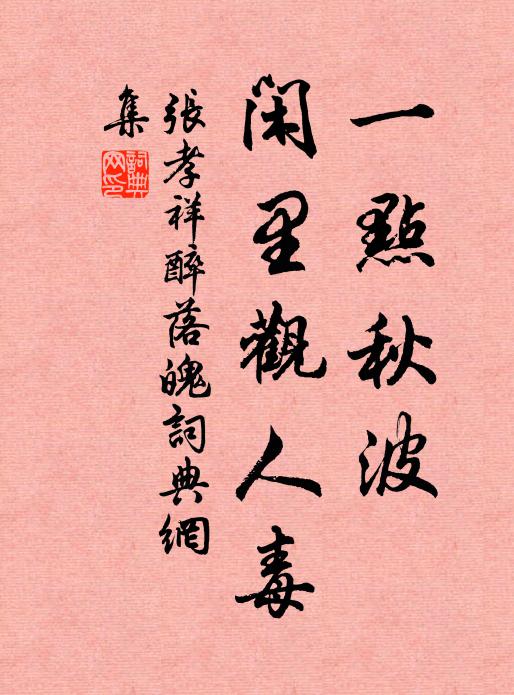 一點秋波
閑里觀人毒
張孝祥醉落魄詞典網
集
詞典網印